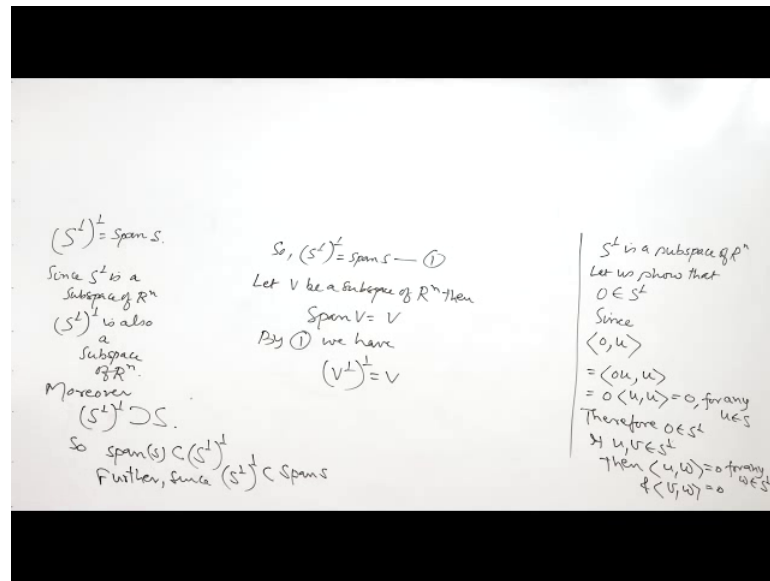 (S⊥)⊥ = Span S.
Since S⊥ is a
Subspace of Rⁿ
(S⊥)⊥ is also
a
Subspace
of Rⁿ.
Moreover
(S⊥)⊥ ⊃ S.
So span(S) ⊂ (S⊥)⊥
Further, since (S⊥)⊥ ⊂ Span S
So, (S⊥)⊥ = span S — ①
Let V be a subspace of Rⁿ then
Span V = V
By ① we have
(V⊥)⊥ = V
S⊥ is a subspace of Rⁿ
Let us show that
0 ∈ S⊥
Since
⟨0, u⟩
= ⟨0u, u⟩
= 0⟨u, u⟩ = 0, for any
u ∈ S
Therefore 0 ∈ S⊥
If u, v ∈ S⊥
Then ⟨u, w⟩ = 0 for any
w ∈ S⊥
& ⟨v, w⟩ = 0